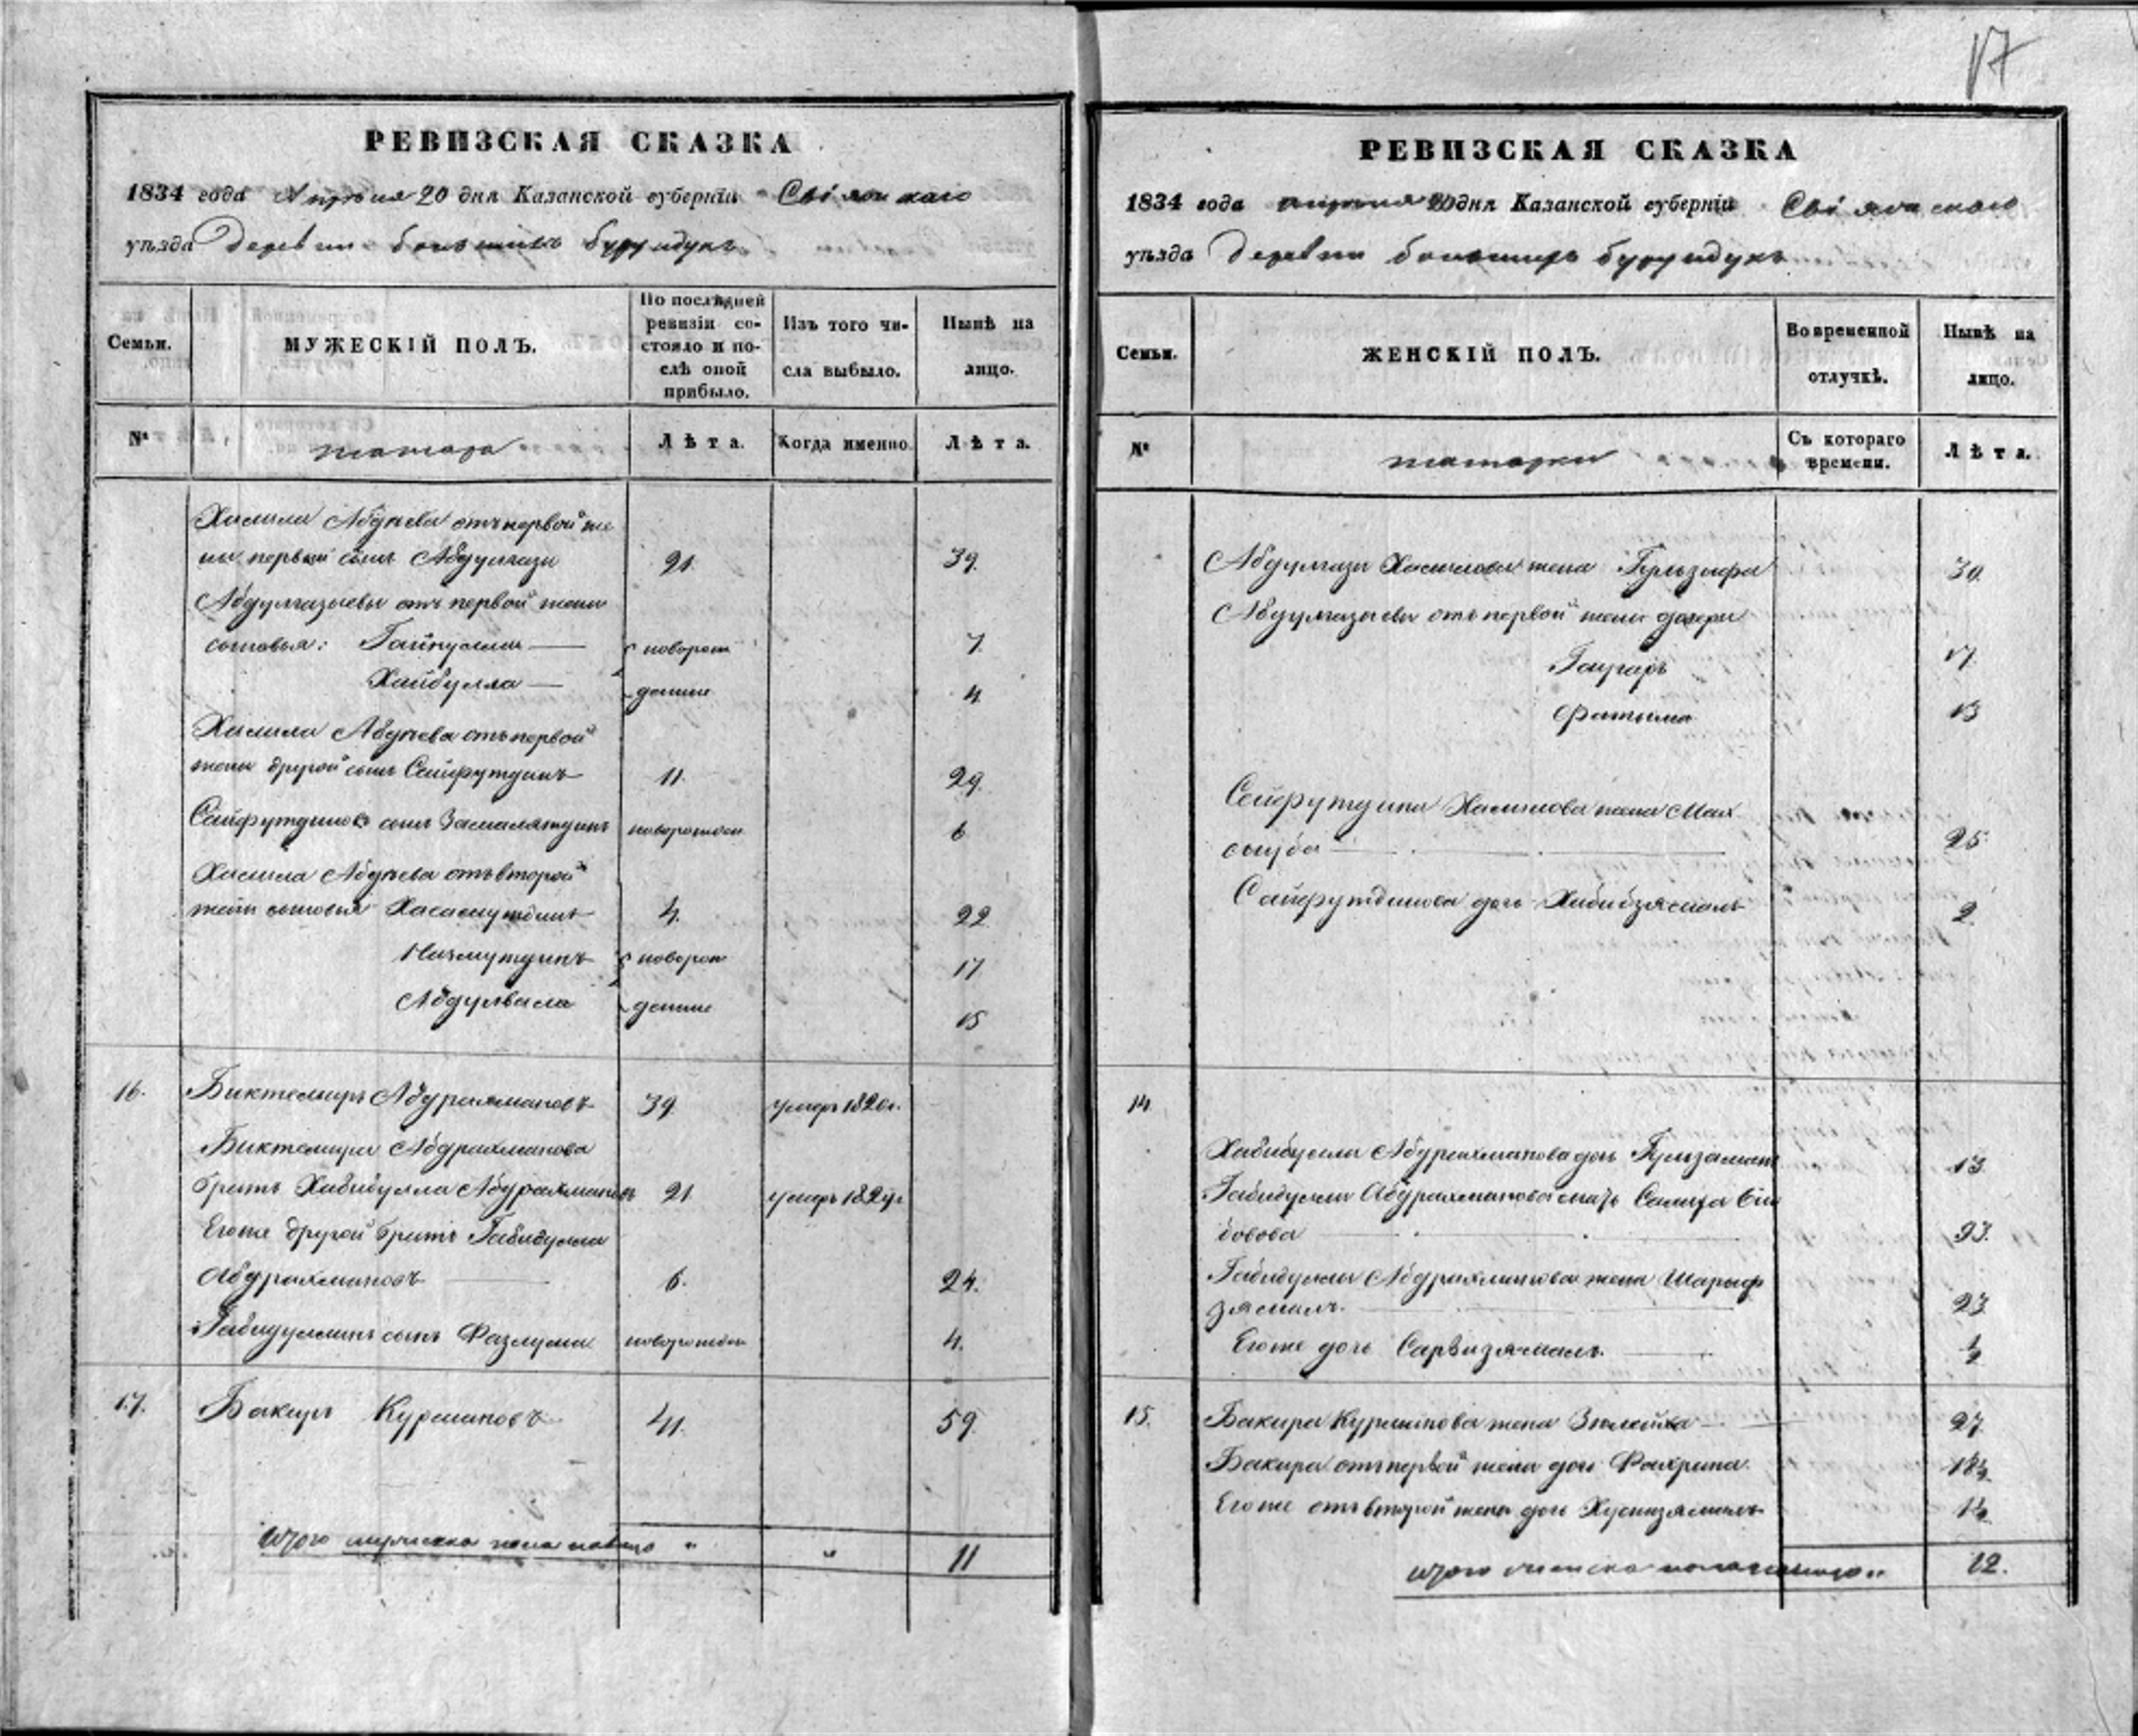 17
РЕВИЗСКАЯ СКАЗКА
1834 года Апреля 20 дня Казанской губерніи Свіяжскаго
уѣзда деревни большихъ бурундукъ
Семьи.
МУЖЕСКІЙ ПОЛЪ.
По послѣдней
ревизіи со-
стояло и по-
слѣ оной
прибыло.
Изъ того чи-
сла выбыло.
Нынѣ на
лицо.
№
татара
Лѣта.
Когда именно
Лѣта.
Халила Абдуева отъ первой же
ны первый сынъ Абдулгази 21. 39.
Абдулгазыевы отъ первой жены
сыновья: Гайнулла новорож 7.
Хайбулла денные 4.
Халила Абдуева отъ первой
жены другой сынъ Сейфутдинъ 11. 29.
Сейфутдиновъ сынъ новорожден 6
Халила Абдуева отъ второй
жены сыновья 4. 22
Назмутдинъ новорож 17
денные 15
16. Биктемиръ Абдрахмановъ 39. умеръ 1826г.
Биктемира Абдрахманова
братъ Хабибулла Абдрахмановъ 21 умеръ
Егоже другой братъ Габидулла
Абдрахмановъ 6. 24.
Габидуллинъ сынъ Фазлулла новорожден 4.
17. Бакиръ Курмановъ 41. 59.
Итого мужеска пола налицо " " 11
РЕВИЗСКАЯ СКАЗКА
1834 года апреля 20 дня Казанской губерніи Свіяжскаго
уѣзда деревни большихъ бурундукъ
Семьи.
ЖЕНСКІЙ ПОЛЪ.
Во временной
отлучкѣ.
Нынѣ на
лицо.
№
татарки
Съ котораго
времени.
Лѣта.
Абдулгази Халилова жена Гульзифа 30.
Абдулгазыевы отъ первой жены дочери
Гаугаръ 17.
Фатыма 13
Сейфутдина Халилова жена Мах
сыуба 25.
Сайфутдинова дочь Хабибзямалъ 2.
14.
Хабибуллы Абдрахманова дочь 13.
Габидуллы Абдрахманова мать
93.
Габидуллы Абдрахманова жена Шарыф
зямалъ. 23.
Егоже дочь Сарвизямалъ. ½
15. Бакира Курманова жена Зюлейха 27.
Бакира отъ первой жены дочь Фахрина. 18½
Егоже отъ второй жены дочь Хуснизямалъ 1½
Итого женска пола налицо " 12.